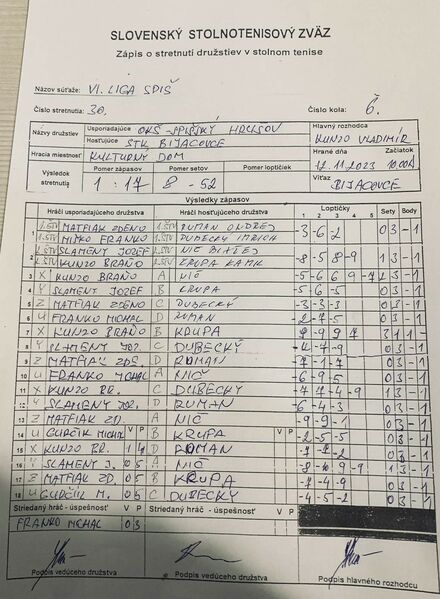 SLOVENSKÝ STOLNOTENISOVÝ ZVÄZ
Zápis o stretnutí družstiev v stolnom tenise
Názov súťaže: VI. LIGA SPIŠ
Číslo stretnutia: 30. Číslo kola: 6.
Názvy družstiev Usporiadajúce OKŠ - SPIŠSKÝ HRUŠOV Hlavný rozhodca
Hosťujúce STK BIJACOVCE KUNZO VLADIMÍR
Hracia miestnosť KULTÚRNY DOM Hrané dňa Začiatok
12.11.2023 10.00
Výsledok stretnutia Pomer zápasov Pomer setov Pomer loptičiek Víťaz
1:17 8-52 BIJACOVCE
Výsledky zápasov
Hráči usporiadajúceho družstva Hráči hosťujúceho družstva Loptičky Sety Body
1 2 3 4 5
1 1.ŠTV MATFIAK ZDENO 1.ŠTV RUMAN ONDREJ
MIŠKO FRANKO DUBECKÝ IMRICH -3 -6 -2 03 -1
2 SLAMENÝ JOZEF NIČ
KUNZO BRAŇO KRUPA KAMIL -8 -5 8 -9 13 -1
3 X KUNZO BRAŇO A NIČ -5 -6 6 9 -7 -1
4 Y SLAMENÝ JOZEF B KRUPA -5 -6 -5 03 -1
5 Z MATFIAK ZDENO C DUBECKÝ -3 -3 -3 03 -1
6 U FRANKO MICHAL D RUMAN -2 -7 -5 03 -1
7 X KUNZO BRAŇO B KRUPA 31 1-
8 Y SLAMENÝ JOZ. C DUBECKÝ -4 -7 -9 03 -1
9 Z MATFIAK ZDE. D ROMAN -7 -1 -7 03 -1
10 U FRANKO MICHAL A NIČ -6 -9 -5 03 -1
11 X KUNZO BR. C DUBECKÝ -7 7 -4 -9 13 -1
12 Y SLAMENÝ JOZ. D RUMAN -6 -4 -3 03 -1
13 Z MATFIAK ZD. A NIČ -9 -9 -1 03 -1
14 U GURČÍK MICHAL V P B KRUPA V P -2 -5 -5 03 -1
15 X KUNZO BR. 1 4 D ROMAN 03 -1
16 Y SLAMENÝ J. 0 5 A NIČ -8 -10 9 -9 13 -1
17 Z MATFIAK ZD. 0 5 B KRUPA -7 -4 -8 03 -1
18 U GURČÍK M. 0 5 C DUBECKÝ -4 -5 -2 03 -1
Striedaný hráč - úspešnosť V P Striedaný hráč - úspešnosť V P
FRANKO MICHAL 0 3
Podpis vedúceho družstva Podpis vedúceho družstva Podpis hlavného rozhodcu